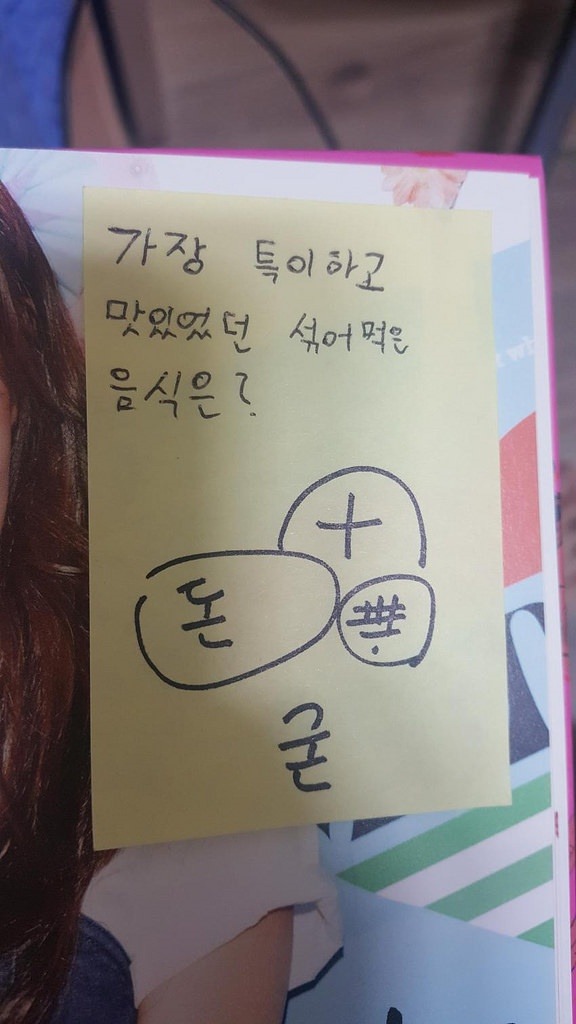 가장 특이하고
맛있었던 섞어먹은
음식은?
+
돈
굳